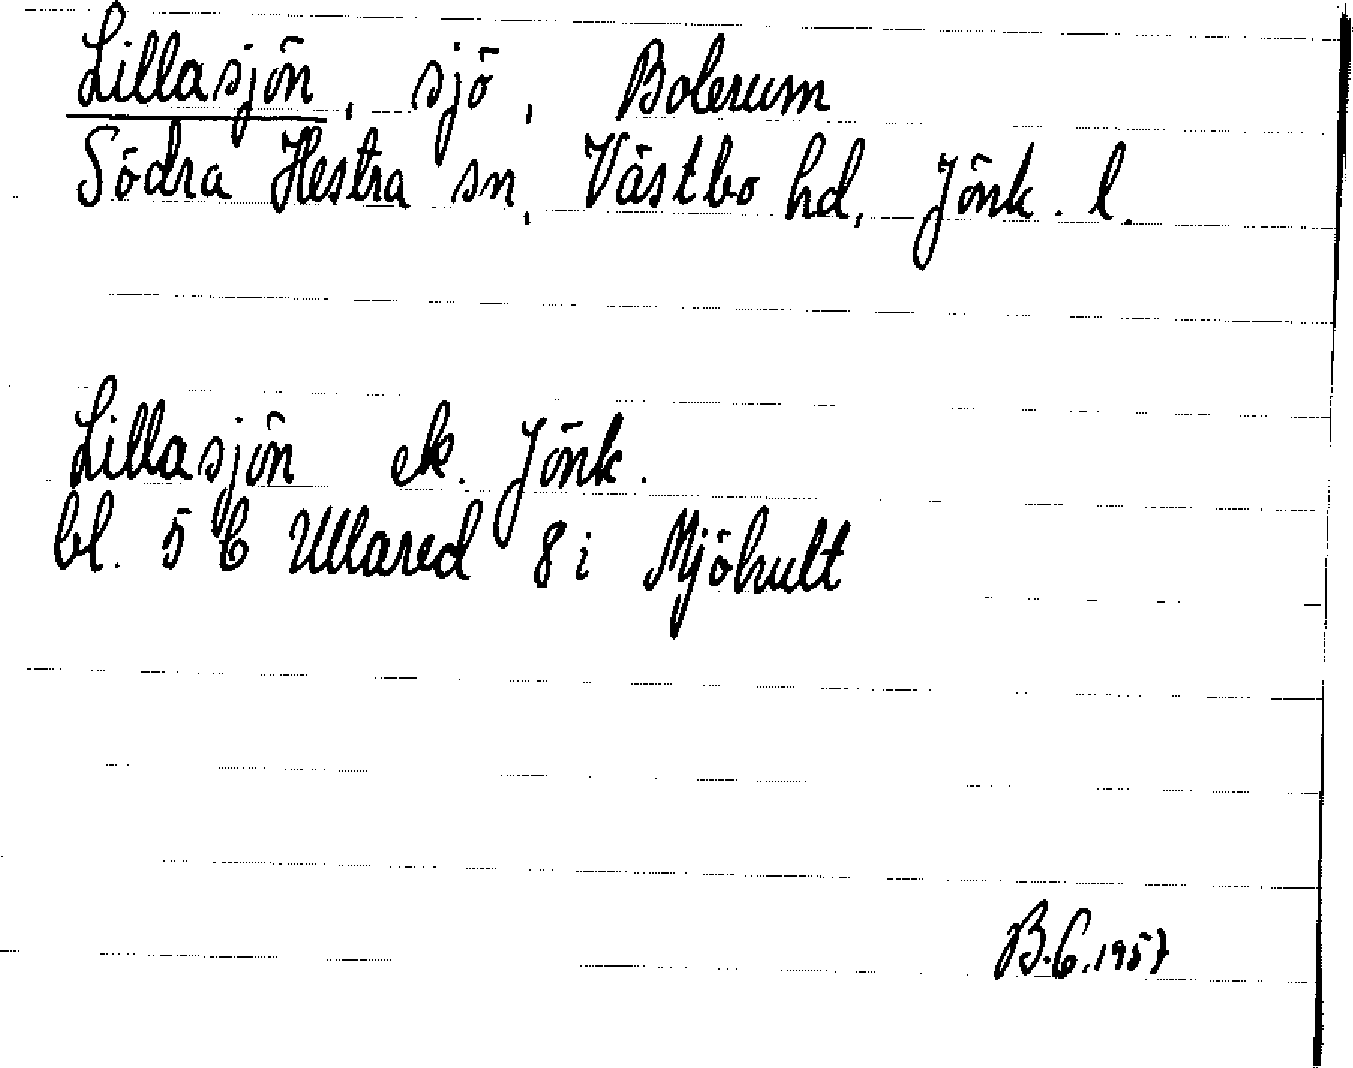 Lillasjön, sjö, Bolerum
Södra Hestra sn, Västbo hd, Jönk. l.
Lillasjön ek. Jönk.
bl. 5 C Ullared 8 i Mjöhult
B.C. 1957